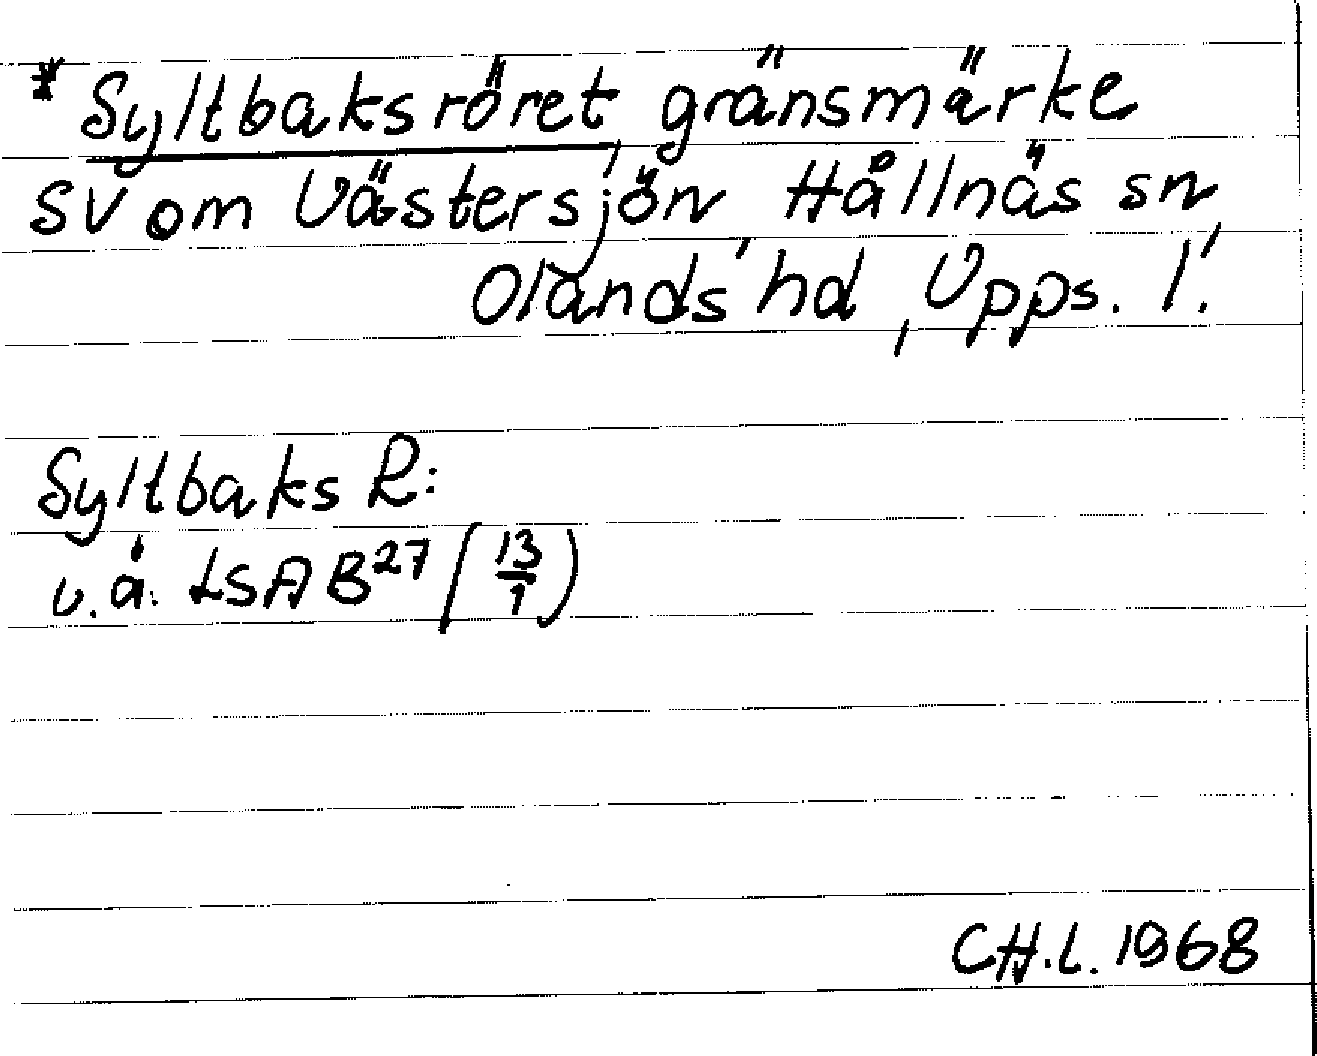 * Syltbaksröret, gränsmärke
SV om Västersjön Hållnäs sn,
Olands hd, Upps. l.
Syltbaks R:
u.å. LSA B27 (13/1)
CH.L. 1968